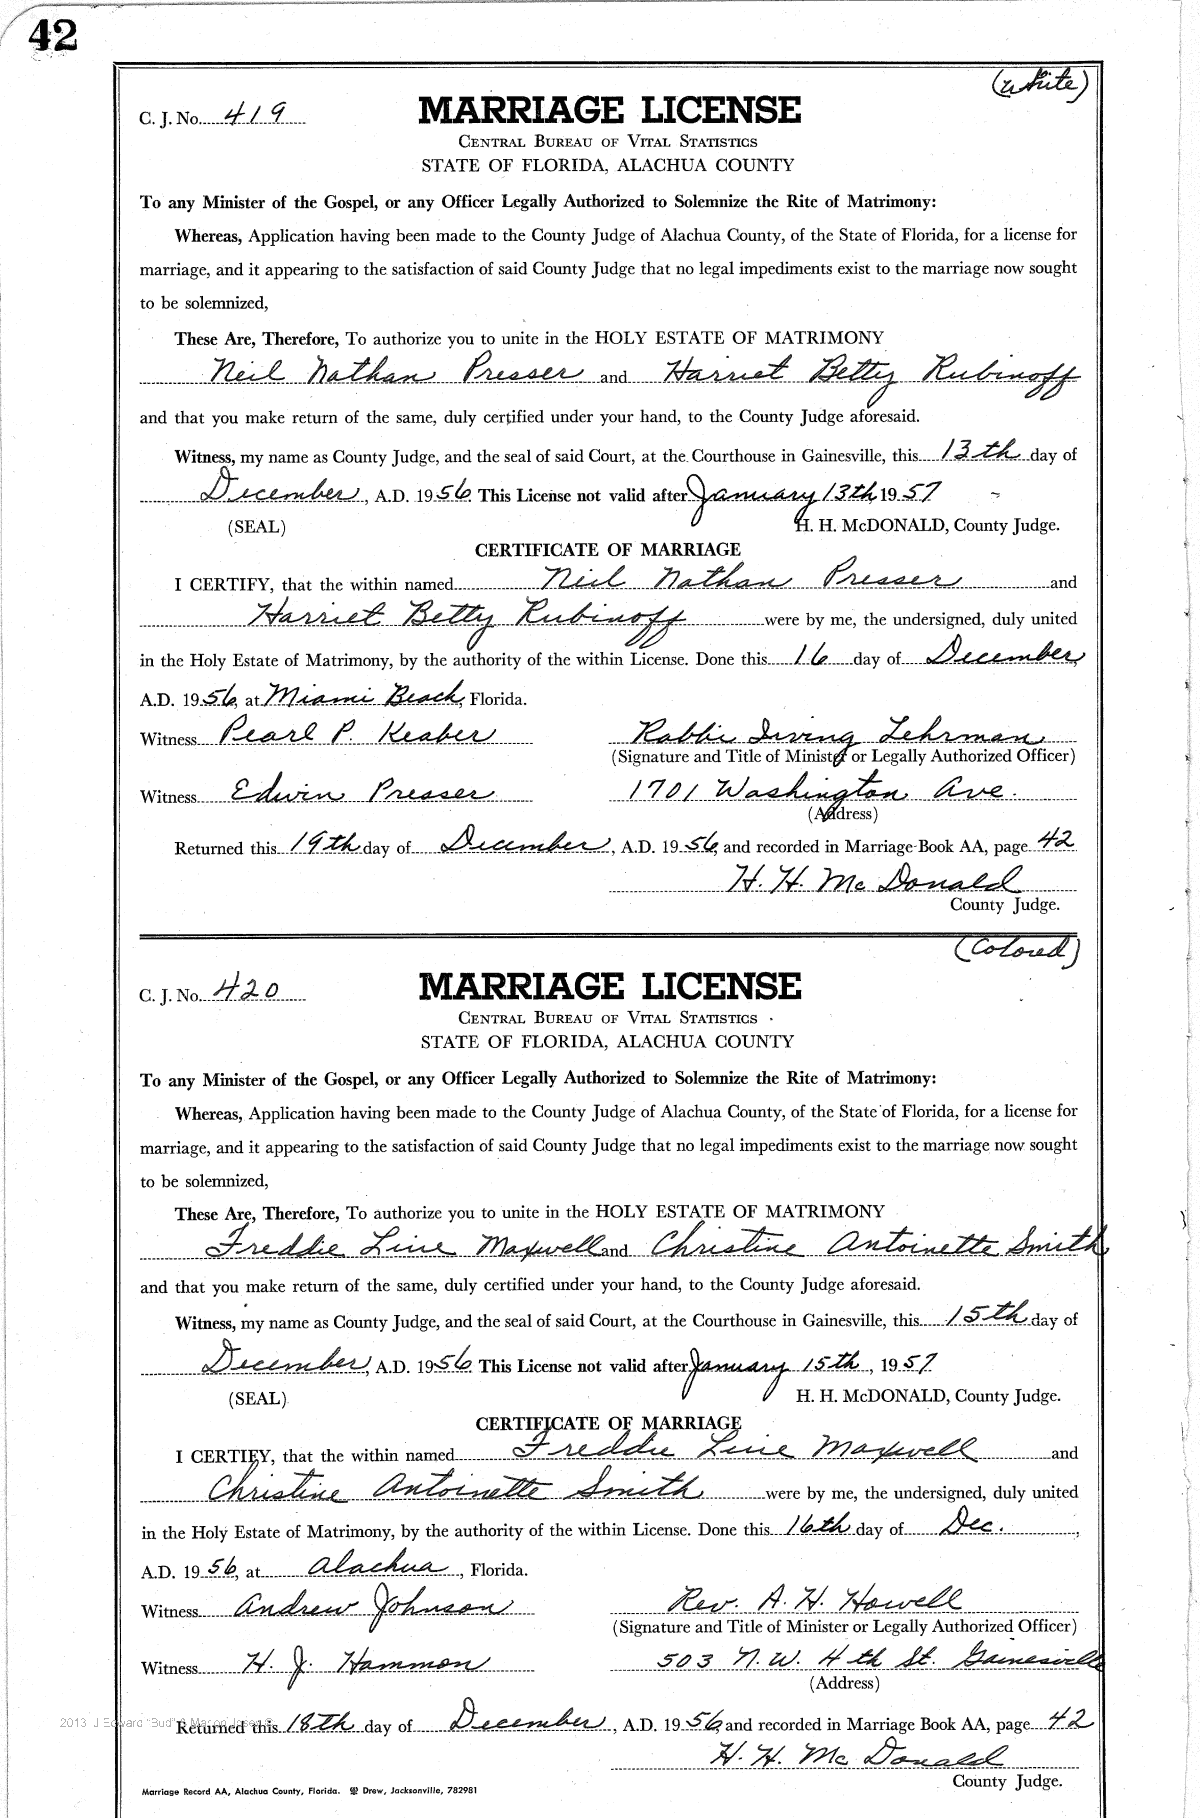 42
(White)
C. J. No. 419
MARRIAGE LICENSE
CENTRAL BUREAU OF VITAL STATISTICS
STATE OF FLORIDA, ALACHUA COUNTY
To any Minister of the Gospel, or any Officer Legally Authorized to Solemnize the Rite of Matrimony:
Whereas, Application having been made to the County Judge of Alachua County, of the State of Florida, for a license for
marriage, and it appearing to the satisfaction of said County Judge that no legal impediments exist to the marriage now sought
to be solemnized,
These Are, Therefore, To authorize you to unite in the HOLY ESTATE OF MATRIMONY
Neil Nathan Presser and Harriet Betty Rubinoff
and that you make return of the same, duly certified under your hand, to the County Judge aforesaid.
Witness, my name as County Judge, and the seal of said Court, at the Courthouse in Gainesville, this 13th day of
December, A.D. 1956. This License not valid after January 13th, 1957
(SEAL) H. H. McDONALD, County Judge.
CERTIFICATE OF MARRIAGE
I CERTIFY, that the within named Neil Nathan Presser and
Harriet Betty Rubinoff were by me, the undersigned, duly united
in the Holy Estate of Matrimony, by the authority of the within License. Done this 16 day of December,
A.D. 1956, at Miami Beach, Florida.
Witness Pearl P. Keaber Rabbi Irving Lehrman
(Signature and Title of Minister or Legally Authorized Officer)
Witness Edwin Presser 1701 Washington Ave.
(Address)
Returned this 19th day of December, A.D. 1956, and recorded in Marriage Book AA, page 42
H. H. Mc Donald
County Judge.
(Colored)
C. J. No. 420
MARRIAGE LICENSE
CENTRAL BUREAU OF VITAL STATISTICS
STATE OF FLORIDA, ALACHUA COUNTY
To any Minister of the Gospel, or any Officer Legally Authorized to Solemnize the Rite of Matrimony:
Whereas, Application having been made to the County Judge of Alachua County, of the State of Florida, for a license for
marriage, and it appearing to the satisfaction of said County Judge that no legal impediments exist to the marriage now sought
to be solemnized,
These Are, Therefore, To authorize you to unite in the HOLY ESTATE OF MATRIMONY
Freddie Line Maxwell and Christine Antoinette Smith
and that you make return of the same, duly certified under your hand, to the County Judge aforesaid.
Witness, my name as County Judge, and the seal of said Court, at the Courthouse in Gainesville, this 15th day of
December, A.D. 1956. This License not valid after January 15th, 1957
(SEAL) H. H. McDONALD, County Judge.
CERTIFICATE OF MARRIAGE
I CERTIFY, that the within named Freddie Line Maxwell and
Christine Antoinette Smith were by me, the undersigned, duly united
in the Holy Estate of Matrimony, by the authority of the within License. Done this 16th day of Dec.,
A.D. 1956, at Alachua, Florida.
Witness Andrew Johnson Rev. A. H. Howell
(Signature and Title of Minister or Legally Authorized Officer)
Witness H. J. Hammon 503 N.W. 4th St. Gainesville
(Address)
2013 J Edward "Bud" &
Returned this 18th day of December, A.D. 1956, and recorded in Marriage Book AA, page 42
H. H. Mc Donald
County Judge.
Marriage Record AA, Alachua County, Florida. Drew, Jacksonville, 782981